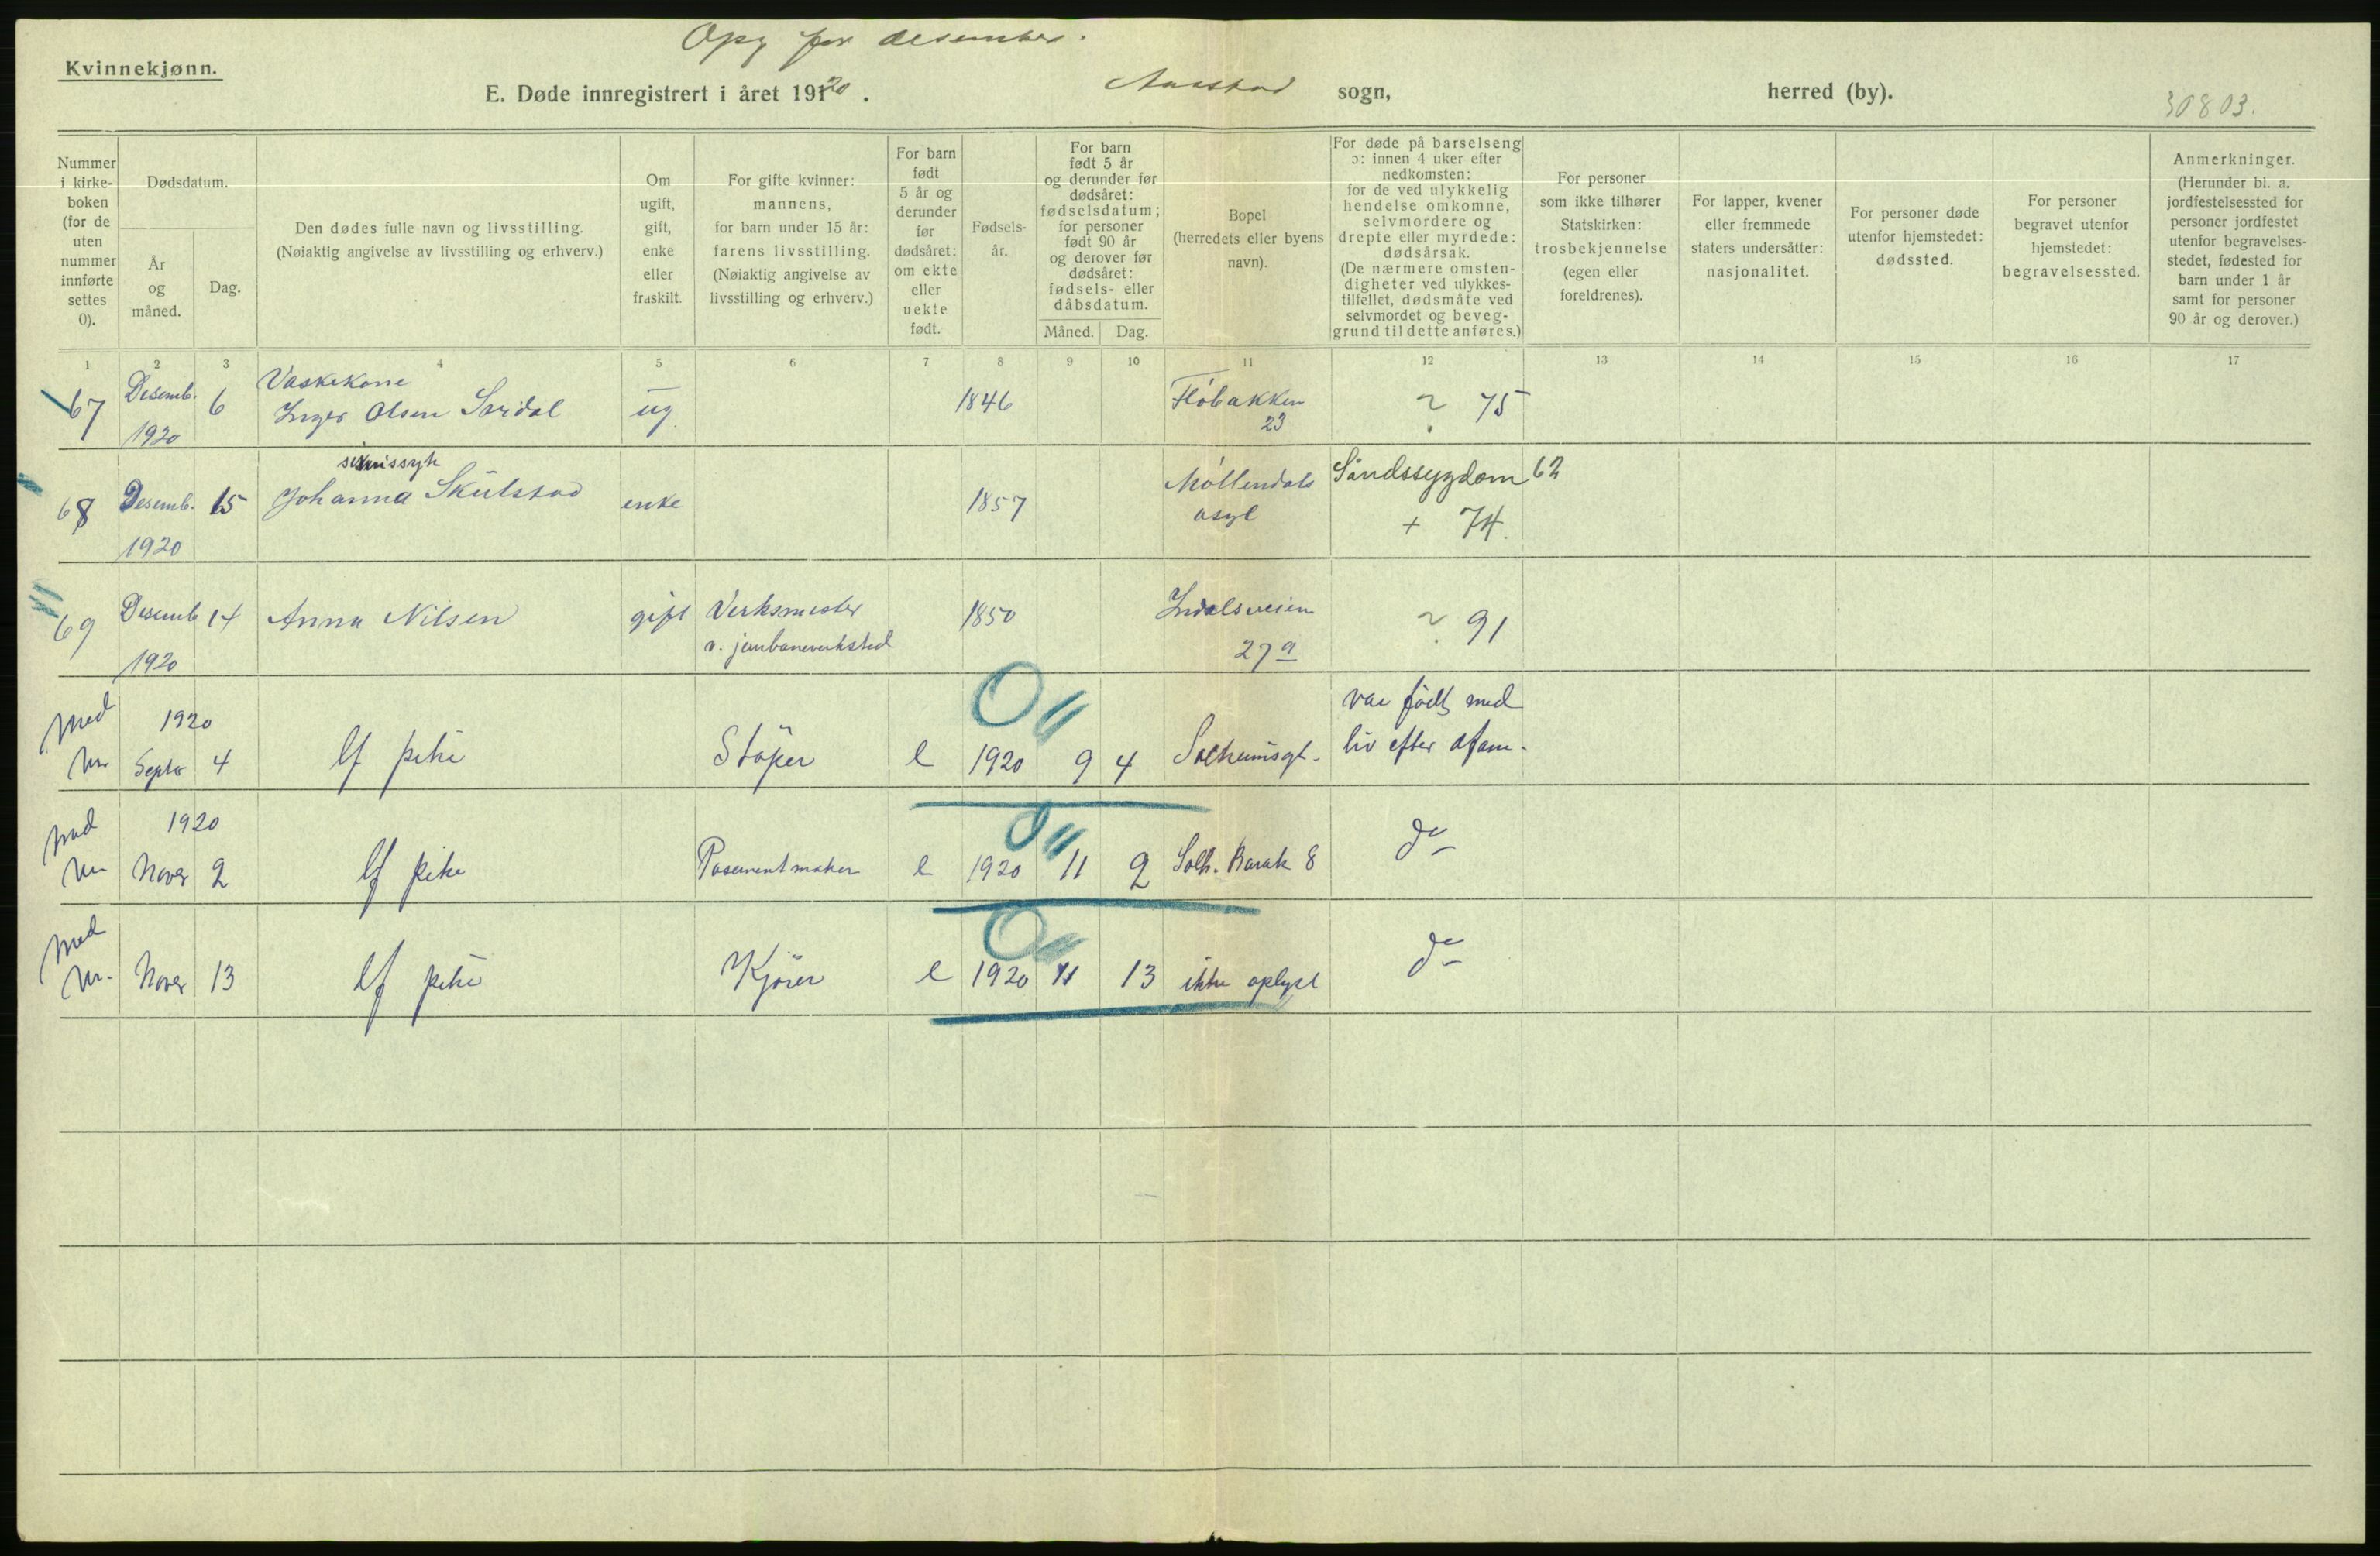 Opg for desember.
Kvinnekjønn.
E. Døde innregistrert i året 191 20 . Aarstad sogn, herred (by). 30803.
Nummer i kirkeboken (for de uten nummer innførte settes 0).
Dødsdatum.
År og måned.
Dag.
Den dødes fulle navn og livsstilling.
(Nøiaktig angivelse av livsstilling og erhverv.)
Om ugift, gift, enke eller fraskilt.
For gifte kvinner: mannens, for barn under 15 år: farens livsstilling. (Nøiaktig angivelse av livsstilling og erhverv.)
For barn født 5 år og derunder før dødsåret: om ekte eller uekte født.
Fødselsår.
For barn født 5 år og derunder før dødsåret: fødselsdatum; for personer født 90 år og derover før dødsåret: fødsels- eller dåbsdatum.
Måned. Dag.
Bopel (herredets eller byens navn).
For døde på barselseng ɔ: innen 4 uker efter nedkomsten: for de ved ulykkelig hendelse omkomne, selvmordere og drepte eller myrdede: dødsårsak. (De nærmere omstendigheter ved ulykkestilfellet, dødsmåte ved selvmordet og beveggrund til dette anføres.)
For personer som ikke tilhører Statskirken: trosbekjennelse (egen eller foreldrenes).
For lapper, kvener eller fremmede staters undersåtter: nasjonalitet.
For personer døde utenfor hjemstedet: dødssted.
For personer begravet utenfor hjemstedet: begravelsessted.
Anmerkninger. (Herunder bl. a. jordfestelsessted for personer jordfestet utenfor begravelsesstedet, fødested for barn under 1 år samt for personer 90 år og derover.)
1 2 3 4 5 6 7 8 9 10 11 12 13 14 15 16 17
67 Desemb. 1920 6 Vaskekone
Inger Olsen ug 1846 Flöbakken 23 ? 75
68 Desemb. 1920 15 sinnssyk
Johanna Skulstad enke 1857 Möllendals asyl Sindssygdom 62
+ 74.
69 Desemb 1920 14 Anna Nilsen gift Verksmester
v. jernbaneverksted 1850 Indalsveien 27a ? 91
med 1920
Septbr 4 pike Stöper e 1920 9 4 Solheimsgt. var födt med
liv efter
1920
Novbr 2 pike Posementmaker e 1920 11 2 Solh. Barak 8 do
Novbr 13 pike Kjörer e 1920 11 13 ikke oplyst do